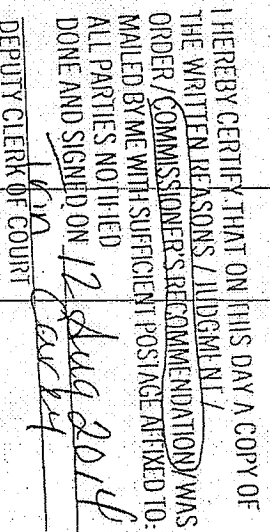 I HEREBY CERTIFY THAT ON THIS DAY A COPY OF
THE WRITTEN REASONS / JUDGMENT /
ORDER / COMMISSIONER'S RECOMMENDATION WAS
MAILED BY ME WITH SUFFICIENT POSTAGE AFFIXED TO:
ALL PARTIES NOTIFIED
DONE AND SIGNED ON 12 Aug 2014
DEPUTY CLERK OF COURT